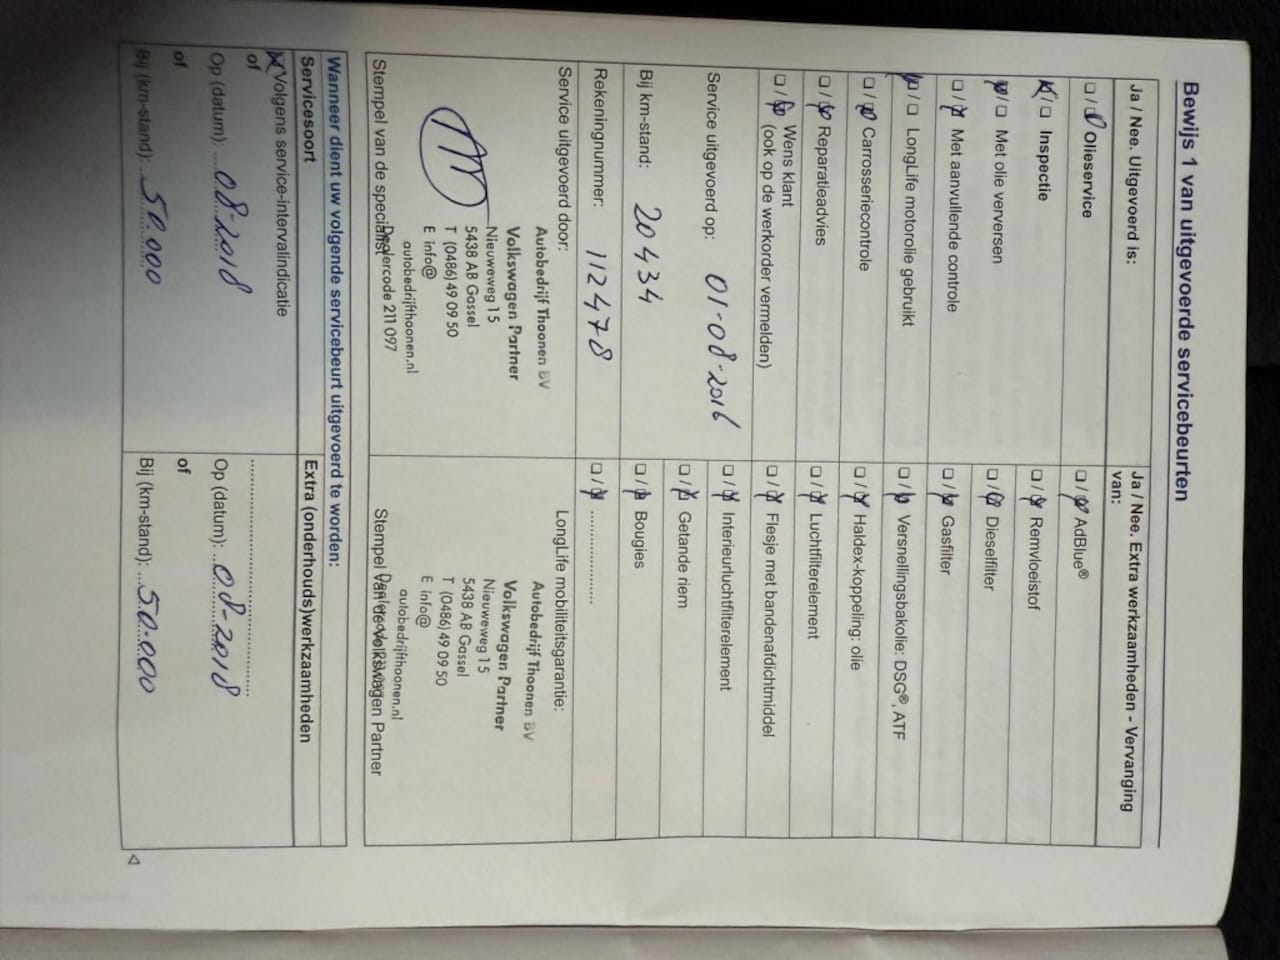 Bewijs 1 van uitgevoerde servicebeurten
Ja / Nee. Uitgevoerd is:
□ / □ Olieservice
□ / □ Inspectie
□ / □ Met olie verversen
□ / □ Met aanvullende controle
□ / □ LongLife motorolie gebruikt
□ / □ Carrosseriecontrole
□ / □ Reparatieadvies
□ / □ Wens klant
(ook op de werkorder vermelden)
Service uitgevoerd op: 01-08-2016
Bij km-stand: 20434
Rekeningnummer: 112478
Service uitgevoerd door:
Autobedrijf Thoonen BV
Volkswagen Partner
Nieuweweg 15
5438 AB Gassel
T (0486) 49 09 50
E info@
autobedrijfthoonen.nl
Dealercode 211 097
Stempel van de specialist
Ja / Nee. Extra werkzaamheden - Vervanging
van:
□ / □ AdBlue®
□ / □ Remvloeistof
□ / □ Dieselfilter
□ / □ Gasfilter
□ / □ Versnellingsbakolie: DSG®, ATF
□ / □ Haldex-koppeling: olie
□ / □ Luchtfilterelement
□ / □ Flesje met bandenafdichtmiddel
□ / □ Interieurluchtfilterelement
□ / □ Getande riem
□ / □ Bougies
□ / □ ................
LongLife mobiliteitsgarantie:
Autobedrijf Thoonen BV
Volkswagen Partner
Nieuweweg 15
5438 AB Gassel
T (0486) 49 09 50
E info@
autobedrijfthoonen.nl
Stempel van de Volkswagen Partner
Wanneer dient uw volgende servicebeurt uitgevoerd te worden:
Servicesoort
Volgens service-intervalindicatie
of
Op (datum): 08-2018
of
Bij (km-stand): 50.000
Extra (onderhouds)werkzaamheden
Op (datum): 08-2018
of
Bij (km-stand): 50.000